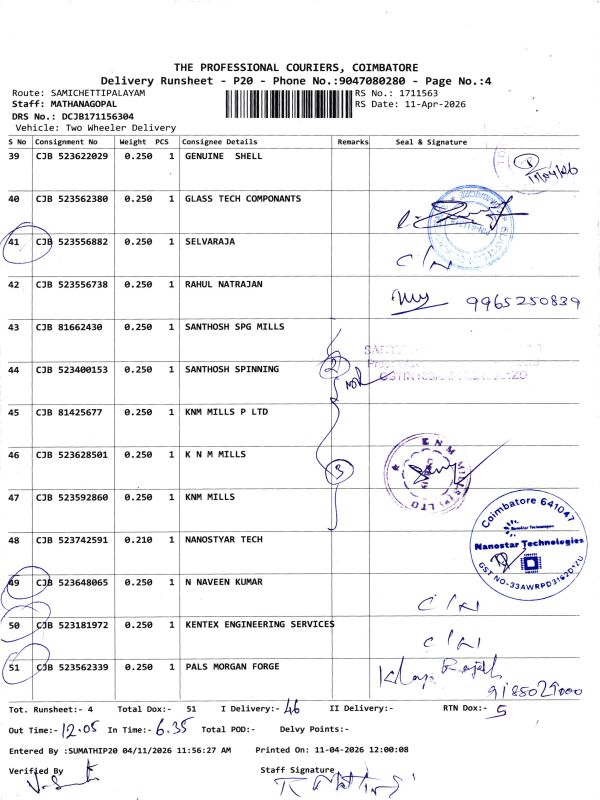 THE PROFESSIONAL COURIERS, COIMBATORE
Delivery Runsheet - P20 - Phone No.:9047080280 - Page No.:4
Route: SAMICHETTIPALAYAM
RS No.: 1711563
Staff: MATHANAGOPAL
RS Date: 11-Apr-2026
DRS No.: DCJB171156304
Vehicle: Two Wheeler Delivery
S No Consignment No Weight PCS Consignee Details Remarks Seal & Signature
39 CJB 523622029 0.250 1 GENUINE SHELL
40 CJB 523562380 0.250 1 GLASS TECH COMPONANTS
41 CJB 523556882 0.250 1 SELVARAJA C/N
42 CJB 523556738 0.250 1 RAHUL NATRAJAN 9965250839
43 CJB 81662430 0.250 1 SANTHOSH SPG MILLS
44 CJB 523400153 0.250 1 SANTHOSH SPINNING 2
45 CJB 81425677 0.250 1 KNM MILLS P LTD
46 CJB 523628501 0.250 1 K N M MILLS 3
47 CJB 523592860 0.250 1 KNM MILLS
48 CJB 523742591 0.210 1 NANOSTYAR TECH
Coimbatore 641047
Nanostar Technologies
Nanostar Technologies
GST NO-33AWRPD3162D1ZU
49 CJB 523648065 0.250 1 N NAVEEN KUMAR C/N
50 CJB 523181972 0.250 1 KENTEX ENGINEERING SERVICES C/N
51 CJB 523562339 0.250 1 PALS MORGAN FORGE
Tot. Runsheet:- 4 Total Dox:- 51 I Delivery:- 46 II Delivery:- RTN Dox:- 5
Out Time:- 12.05 In Time:- 6.35 Total POD:- Delvy Points:-
Entered By :SUMATHIP20 04/11/2026 11:56:27 AM Printed On: 11-04-2026 12:00:08
Verified By Staff Signature